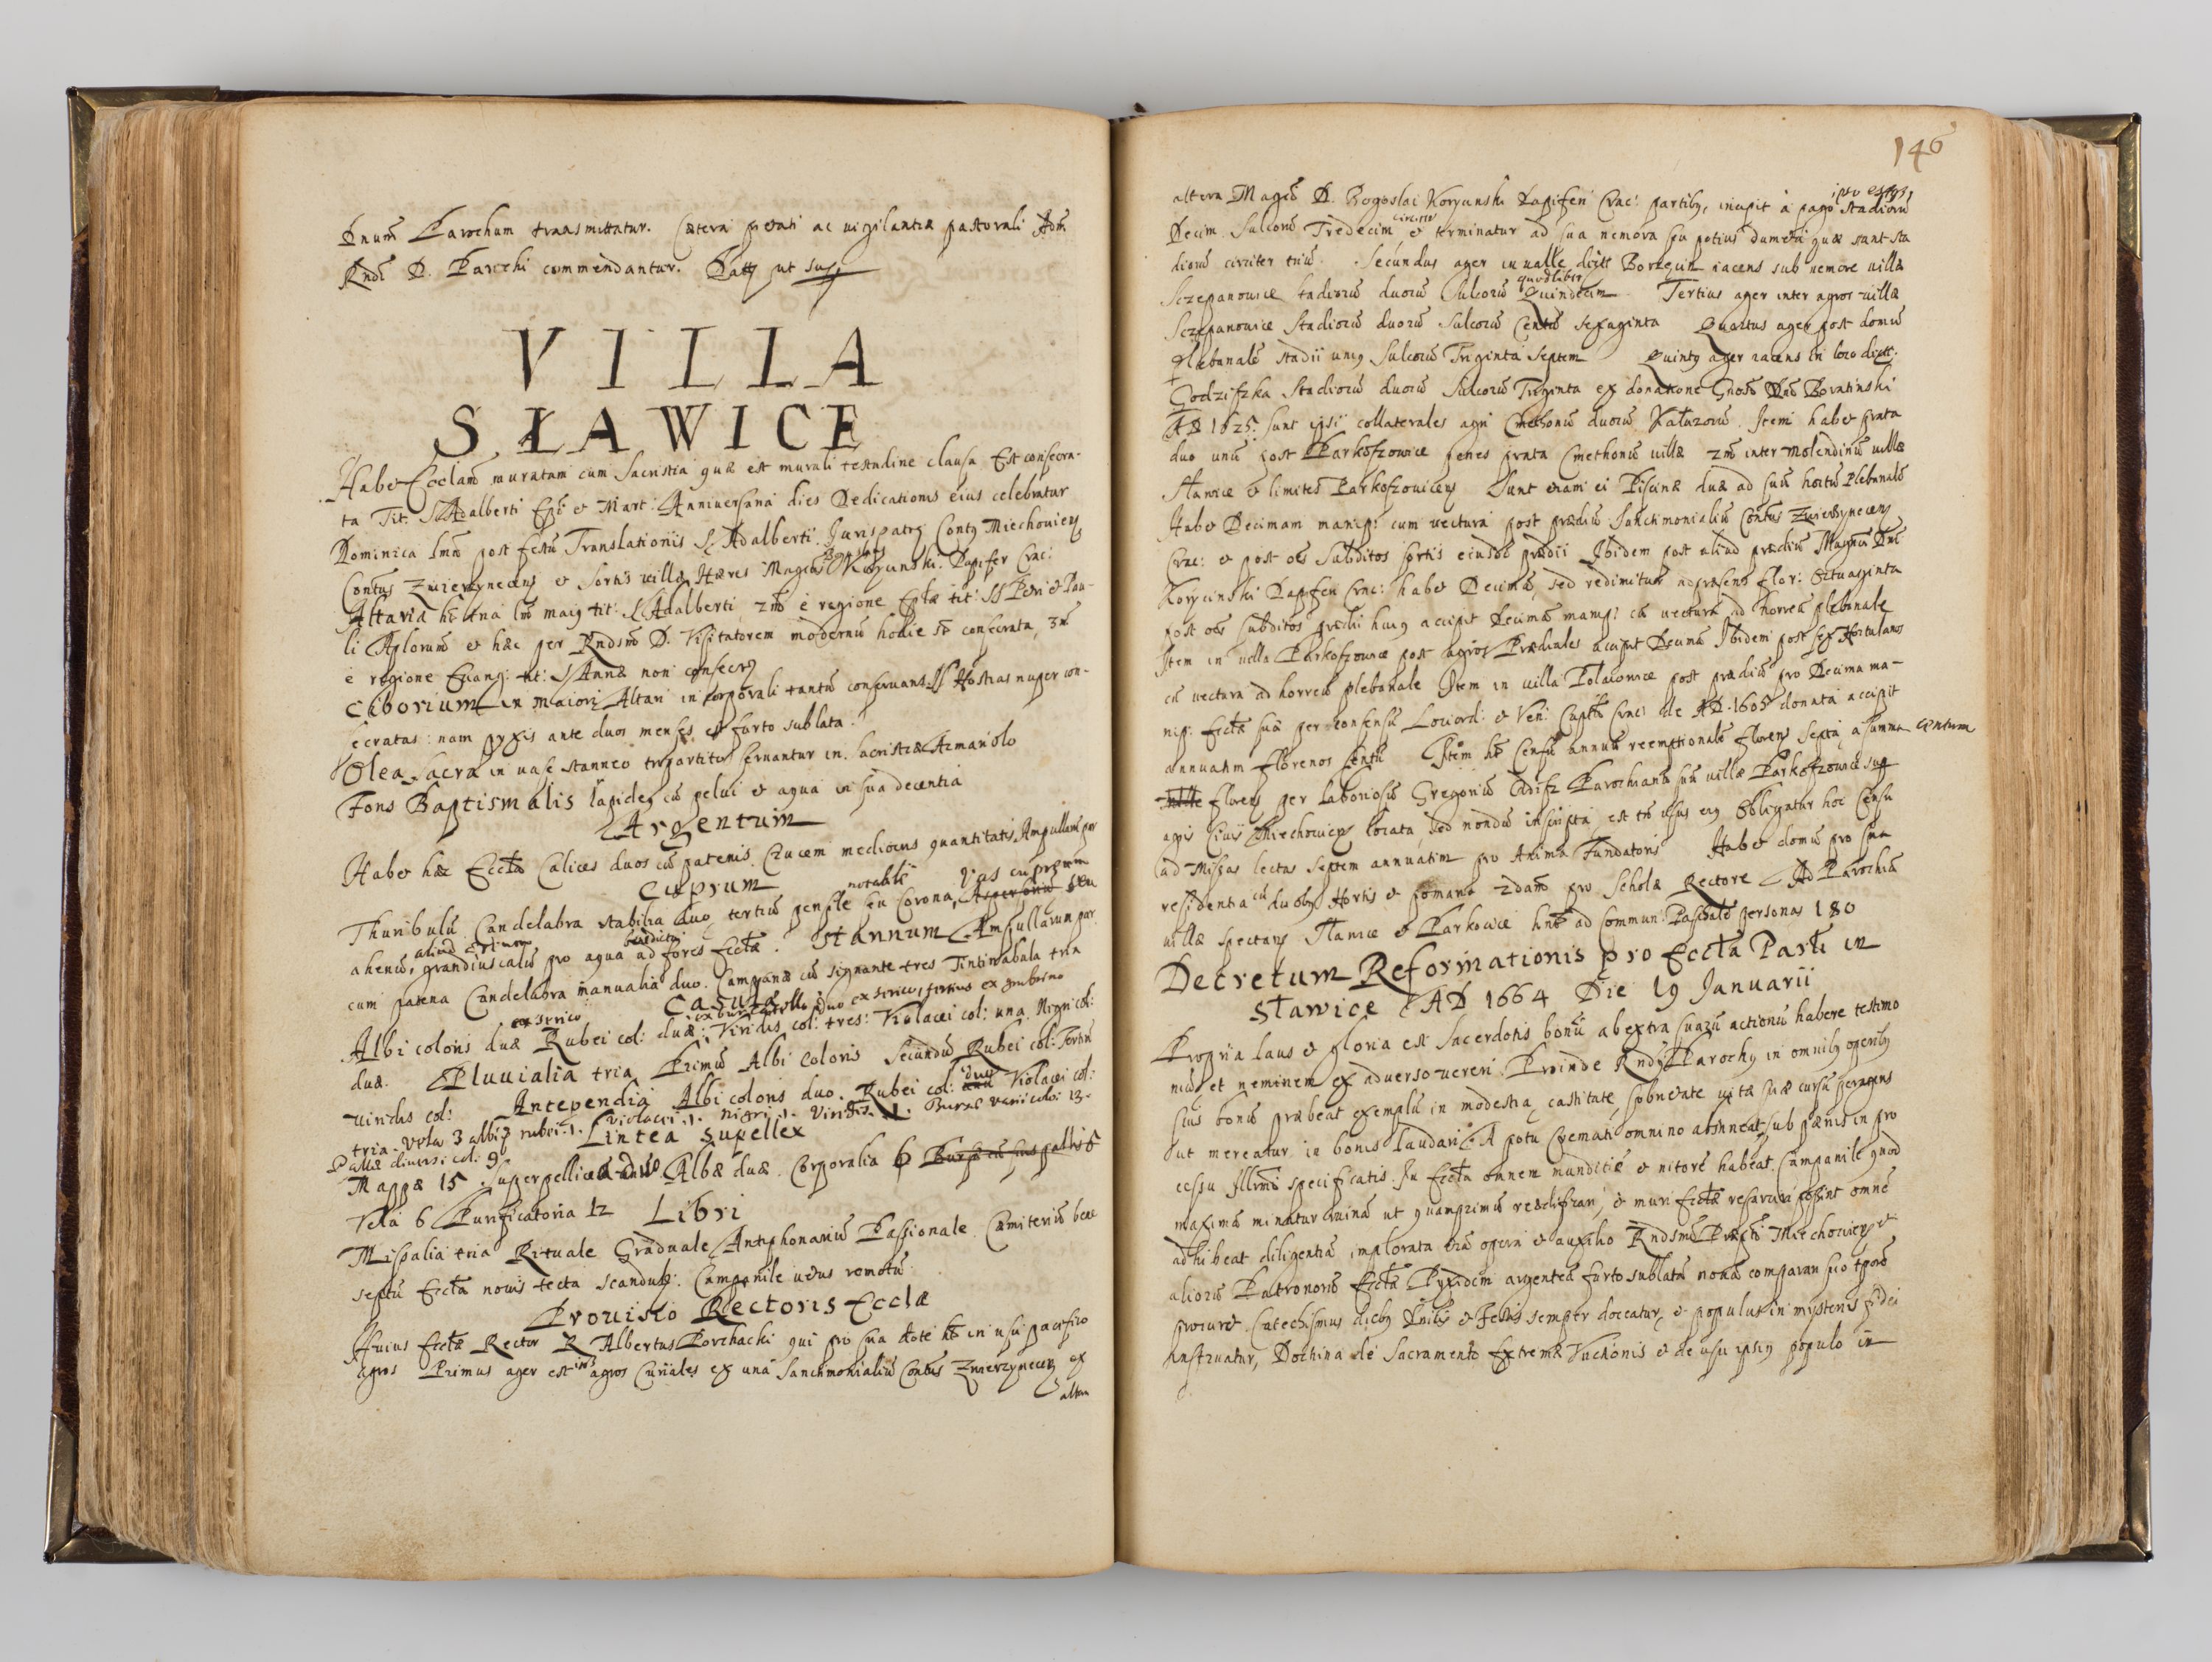 Dnum Parochum transmittatur. Cætera pietati ac vigilantiæ pastorali Adm
Rndi D. Parochi commendantur. Datt ut sup
VILLA
SŁAWICE
Habet Ecclam muratam cum Sacristia quæ est murali testudine clausa Est consecra-
ta Tit. S. Adalberti Epi et Mart: Anniversaria dies Dedicationis eius celebratur
Dominica post festũ Translationis S. Adalberti. Jurispatrg Contg Miechovieñ
Contus Zwierzynecens et Sortis villæ Hæres Magcus Boguslaus Korycinski Dapifer Crac:
Altaria tria maig tit: S. Adalberti 2m è regione Eplæ tit: SS Petri et Pau-
li Aplorum et hæc per Rndsm D. Visitatorem modernũ hodie st consecrata, 3m
è regione Evang: tit: S Annæ non consecr
Ciborium in maiori Altari in corporali tantũ conservant SS Hostias nuper con-
secratas: nam pyxis ante duos menses est furto sublata.
Olea Sacra in vase stanneo tripartito servantur in sacristiæ Armariolo
Fons Baptismalis lapideg cũ pelvi et aqua in sua decentia
Argentum
Habet hæc Eccla Calices duos cũ patenis. Crucem mediocris quantitatis, Ampullarũ par
Cuprum
notabile Vas cupreum
Thuribulũ Candelabra stabilia duo, tertiũ pensile seu Corona, Aspersoriũ seu
aliud benedicta
ahenũ, grandiusculũ pro aqua ad fores Ecclæ. Stannum Ampullarum par
cum patena Candelabra manualia duo. Campanæ cũ signante tres Tintinabula tria
Casulæ
ex serico duo ex serico, tertius ex
Albi coloris duæ Rubei col: duæ: Viridis col: tres: Violacei col: una Nigri col:
duæ. Pluvialia tria Primus Albi coloris Secundũ Rubei col: Tertiũ
viridis col: Antependia Albi coloris duo. Rubei col: duo Violacei col:
tria Vela 3 albi 3 rubei 1. violacei 1. nigri 1. Viridis 1. Bursæ varii colori 13.
Pallæ diversi col: 9 Lintea Supellex
Mappæ 15 Superpellicea duo Albæ duæ. Corporalia 6 Bursæ cũ suis pallis 5
Vela 6 Purificatoria 12 Libri
Missalia tria Rituale Graduale Antiphonariũ Passionale. Cæmiteriũ bene
septũ Eccla novis tecta scandulis. Campanile vetus remotũ
Provisio Rectoris Ecclæ
Huius Ecclæ Rector R Albertus Porchacki qui pro sua dote ht in usu pacifico
agros Primus ager est int agros Curiales ex una Sanctimonialiũ Contus Zwierzynecen ex
altera
146
altera Magci D. Bogoslai Korycinski Dapiferi Crac: partibg, incipit à pago Stadiorũ
Decim Sulcorũ Tredecim circiter et terminatur ad sua nemora seu potius dumeta quæ sunt sta
diorũ circiter triũ. Secundus ager in valle dicte Borzęcin iacens sub nemore villæ
Sczepanowice stadiorũ duorũ Sulcorũ quodlibet Quindecim Tertius ager inter agros villæ
Sczepanowice Stadiorũ duorũ Sulcorũ Centũ sexaginta Quartus ager post domũ
Plebanalẽ stadii unig Sulcorũ Triginta Septem Quintg ager iacens in loco dict
Godziszka Stadiorũ duorũ Sulcorũ Triginta ex donatione Gnosi Dni Boratinski
AD 1625. sunt ipsi collaterales agri Cmethonũ duorũ Kałuzorũ. Item habet prata
duo unũ post Parkoszowice penes prata Cmethonũ villæ 2m inter molendinũ villæ
Slawice et limites Parkoszovicens Sunt etiam ei Piscinæ duæ ad suũ hortũ Plebanalẽ
Habet Decimam manip: cum vectura post prædiũ Sanctimonialiũ Contus Zwierzynecen
Crac: et post oẽs Subditos sortis eiusdẽ prædii Ibidem post aliud prædiũ Magnci Dni
Korycinski Dapiferi Crac: habet Decimã, sed redimitur ad præsens flor: Octuaginta
post oẽs subditos prædii huig accipit Decimã manip: cũ vectura ad horreũ plebanale
Item in villa Parkoszowice post agros Prædiales accipit Decimã Ibidem post sex Hortulanos
cũ vectura ad horreũ plebanale Item in villa Polanowice post prædiũ pro Decima ma-
nip: Ecclæ suæ per consensũ Loci ord: et Ven: Capti Crac: de AD. 1605 donata accipit
annuatim florenos Centũ Item ht Censũ annuũ reemptionalẽ florens septẽ à summa centum
florens per Laboriosũ Gregoriũ Parochianũ suũ villæ Parkoszowice sup
agris Civiũ Miechovien locata, sed nondũ inscripta est tñ usus eig Obligatur hoc Censu
ad Missas lectas septem annuatim pro Anima Fundatoris Habet domũ pro sua
residentia cũ duobg Hortis et pomario 2dam pro Scholæ Rectore Ad Parochiã
villæ spectans Slawice et Parkowice hnt ad commun: Paschalẽ personas 180
Decretum Reformationis pro Eccla Parli in
Sławice AD 1664 Die 19 Januarii
Propria laus et gloria est Sacerdotis bonũ ab extra suarũ actionũ habere testimo
niũ, et neminem ex adverso vereri. Proinde Rndg Parochg in omnibg operibg
suis bonũ præbeat exemplũ in modestia, castitate, sobrietate vitæ suæ cursũ peragens
ut mereatur in bonis laudari A potu Cremati omnino abstineat sub pænis in pro
cessu Illrmi specificatis. In Eccla omnem munditiẽ et nitorẽ habeat. Campanile quod
maximã minatur ruinã ut quamprimũ reædificari, et muri Ecclæ resarciri possint omnẽ
adhibeat diligentiã, implorata etiã opera et auxilio Rndsmi Præpti Miechoviens et
aliorũ Patronorũ Ecclæ Pyxidem argenteã furto sublatã novã comparari suo tpore
procuret. Catechismus diebg Dnicis et Festis semper doceatur, et populus in mysteriis fidei
instruatur, Doctrina de Sacramento Extremæ Unctionis et de usu ipsig populo in